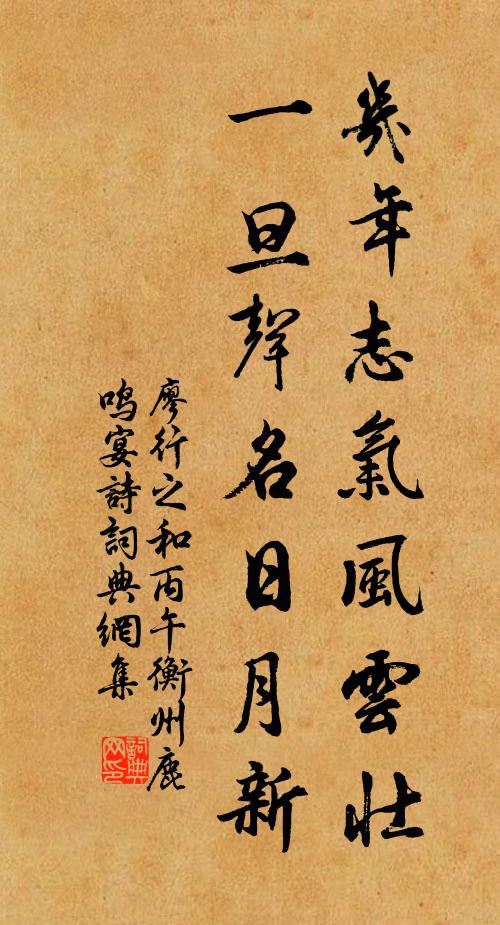 幾年志氣風雲壯
一旦聲名日月新
廖行之和丙午衡州鹿
鳴宴詩詞典網集
詞典
网印